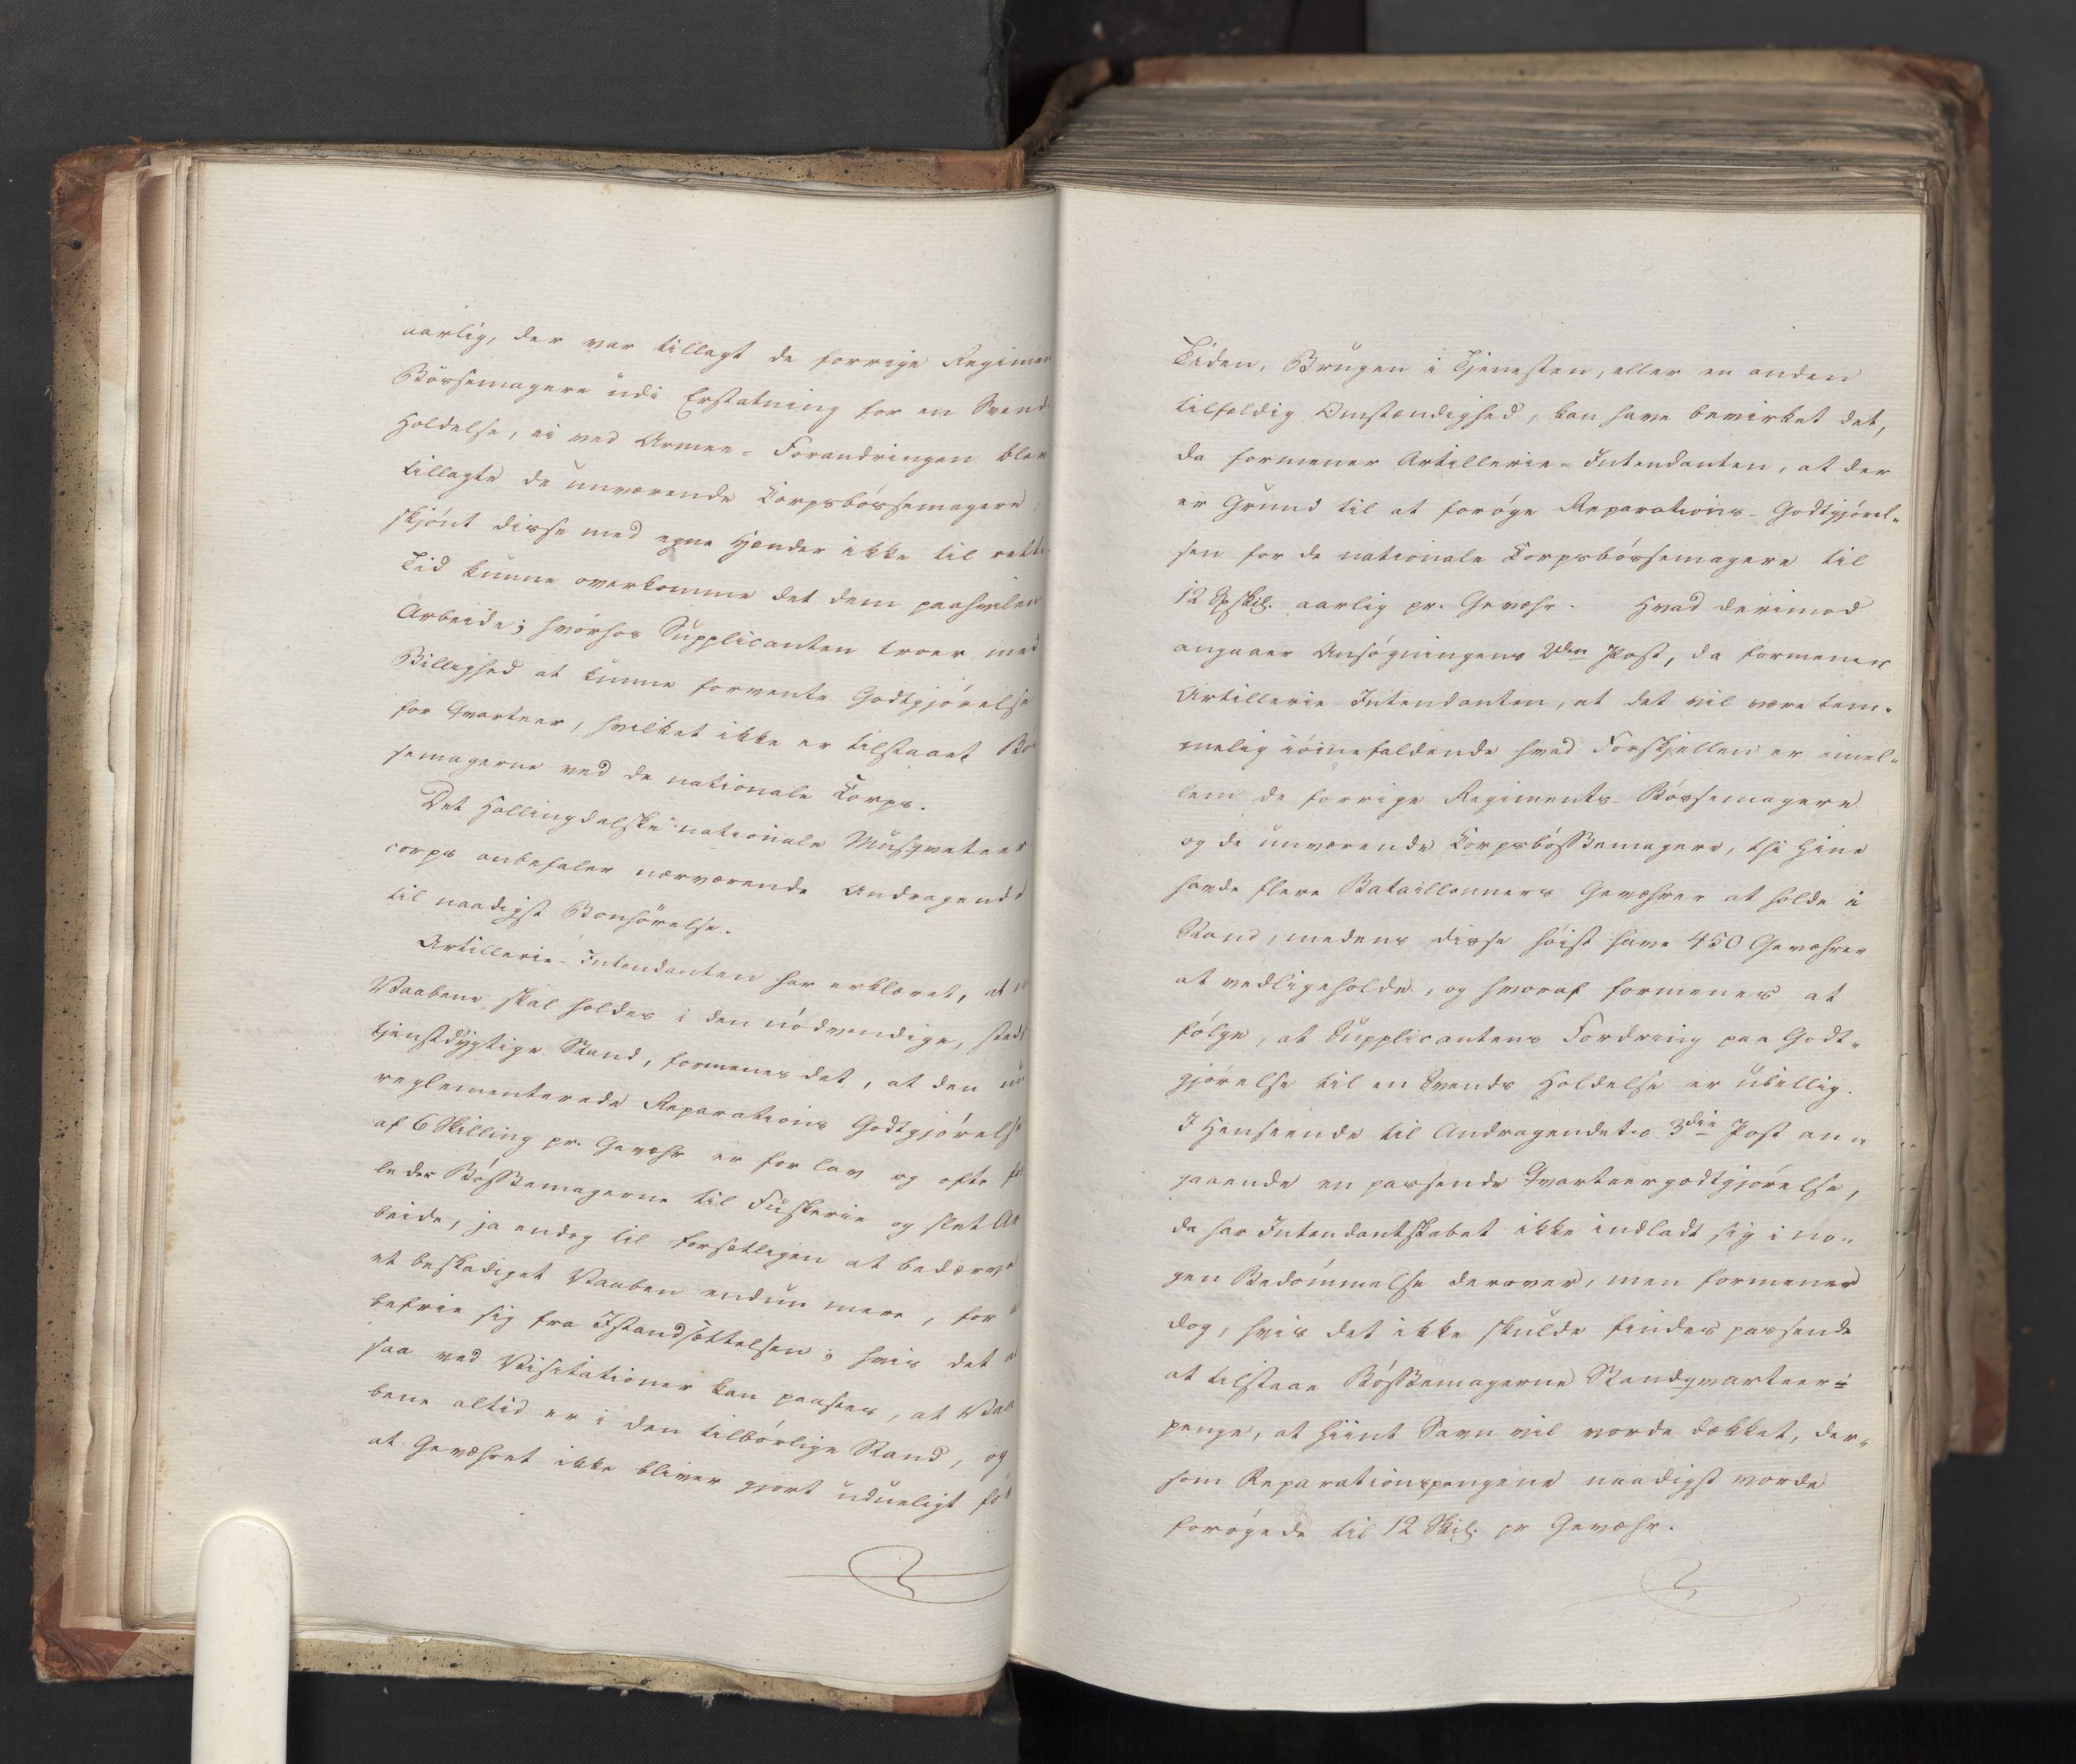 aarlig, der var tillagt de forrige Regimen
Bössemagere udi Erstatning for en Svend
Holdelse, ei ved Armee-Forandringen blev
tillagte de nuværende Corpsbóssemagere,
skjónt disse med egne Hænder ikke til rette
Tid kunne overkomme det dem paahvilen
Arbeide; hvorhos Supplicanten troer med
Billighed at kunne forvente Godtgjórelse
for Qvarteer, hvilket ikke er tilstaaet Bós
semagerne ved de nationale Corps.
Det Hallingdalske nationale Musqveteer
corps anbefaler nærværende Andragende
til naadigst Bonhörelse.
Artillerie-Intendanten har erklæret, at
Vaabene skal holdes i den nódvendige, stedse
tjenstdygtige Stand, formenes det, at den nu
reglementerede Reparations Godtgjórelse
af 6 Skilling pr. Gevæhr er for lav og ofte for
leder Bósßemagerne til Fuskerie og slet Ar
beide, ja endog til forsætligen at bedærve
et beskadiget Vaaben endnu mere, for at
befrie sig fra Istandsættelsen; hvis det
saa ved Visitationer kan paasees, at Vaa
bene altid er i den tilbórlige Stand, og
at Gevæhret ikke bliver gjort udueligt fór
Tiden, Brugen i Tjenesten, eller en anden
tilfældig Omstændighed, kan have bevirket det,
da formener Artillerie-Intendanten, at der
er Grund til at foröge Reparations-Godtgjórel-
sen for de nationale Corpsbóssemagere til
12 Skil. aarlig pr. Gevæhr. Hvad derimod
angaaer Ansógningens 2den Post, da formener
Artillerie-Intendanten, at det vil være tem-
melig ióinefaldende hvad Forskjellen er imel-
lem de forrige Regiments-Bóssemagere
og de nuværende Corpsbósßemagere, thi hine
havde flere Bataillonners Gevæhrer at holde i
Stand, medens disse hóist have 450 Gevæhrer
at vedligeholde, og hvoraf formenes at
fólge, at Supplicantens Fordring paa Godt-
gjórelse til en Svends Holdelse er ubillig.
I Henseende til Andragendets 3die Post an-
gaaende en passende Qvarteergodtgjórelse,
da har Intendantskabet ikke indladt sig i no-
gen Bedómmelse derover, men formener
dog, hvis det ikke skulde findes passende
at tilstaae Bósßemagerne Standqvarteer-
penge, at hiint Savn vil vorde dækket, der-
som Reparationspengene naadigst vorde
forógede til 12 Skil. pr Gevæhr.